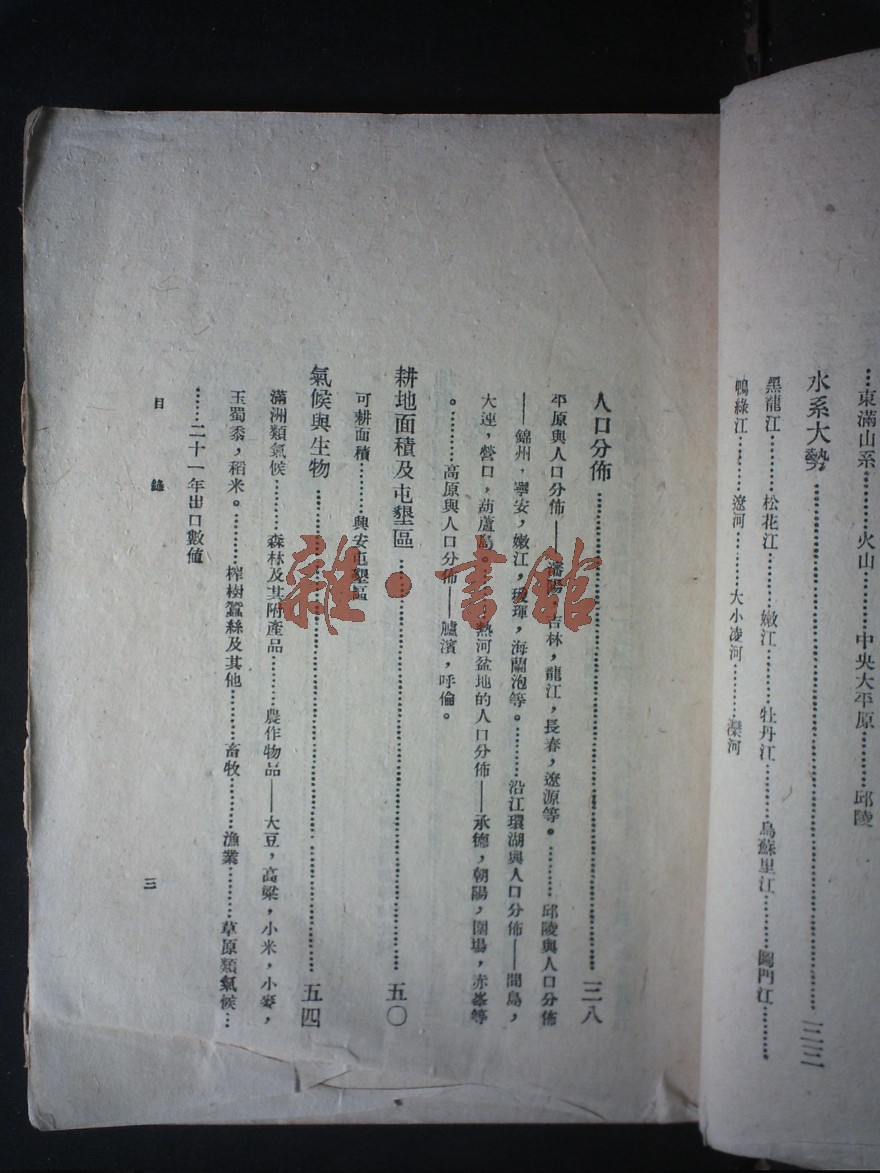 …東滿山系………火山………中央大平原………邱陵
水系大勢………二三
黑龍江………松花江………嫩江………牡丹江………烏蘇里江………圖們江………
鴨綠江………遼河………大小凌河………灤河
人口分佈………三八
平原與人口分佈——瀋陽，吉林，龍江，長春，遼源等。………邱陵與人口分佈
——錦州，寧安，嫩江，璦琿，海蘭泡等。………沿江環湖與人口分佈——間島，
大連，營口，葫蘆島。熱河盆地的人口分佈——承德，朝陽，圍場，赤峯等
。………高原與人口分佈——臚濱，呼倫。
耕地面積及屯墾區………五〇
可耕面積………興安屯墾區
氣候與生物………五四
滿洲類氣候………森林及其附產品………農作物品——大豆，高粱，小米，小麥，
玉蜀黍，稻米。………榨樹蠶絲及其他………畜牧………漁業………草原類氣候…
……二十一年出口數值
目錄
三
雜·書館